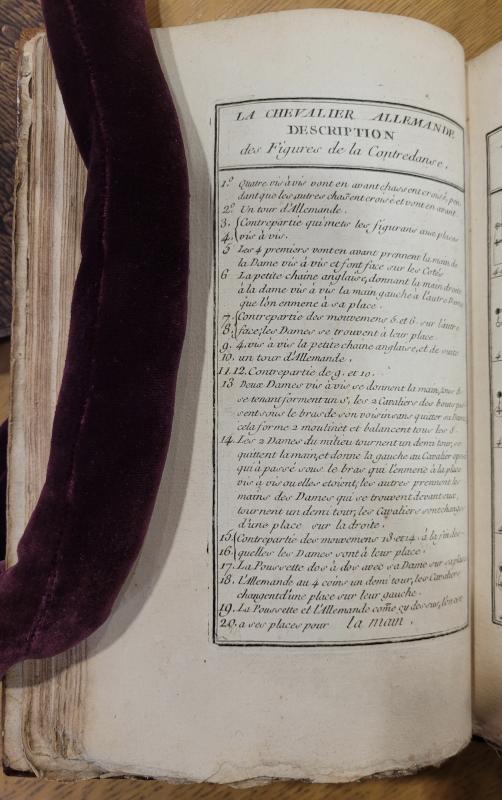 LA CHEVALIER ALLEMANDE
DESCRIPTION
des Figures de la Contredanse.
1.º Quatre vis à vis vont en avant chassent croisé, pen
dant que les autres chassent croisé et vont en avant.
2.º Un tour d'Allemande.
3. Contrepartie qui mets les figurans aux places
4. vis à vis.
5 Les 4 premiers vont en avant prennent la main de
la Dame vis à vis et font face sur les Cotés
6 La petite chaine anglaise, donnant la main droite
à la dame vis à vis la main gauche à l'autre Dame
que l'on enmene à sa place.
7. Contrepartie des mouvemens 5. et 6. sur l'autre
8. face; les Dames se trouvent à leur place.
9. 4. vis à vis la petite chaine anglaise, et de suite
10. un tour d'Allemande.
11. 12. Contrepartie de 9. et 10.
13 Deux Dames vis à vis se donnent la main, tous 8.
se tenant forment un S, les 2 Cavaliers des bouts pas
sent sous le bras de son voisin sans quitter sa Dame,
cela forme 2 moulinet et balancent tous les 8.
14. Les 2 Dames du milieu tournent un demi tour, se
quittent la main, et donne la gauche au Cavalier
qui à passé sous le bras qui l'enmene à la place
vis à vis ou elles etoient; les autres prennent les
mains des Dames qui se trouvent devant eux,
tournent un demi tour, les Cavaliers sont changés
d'une place sur la droite.
15. Contrepartie des mouvemens 13 et 14. à la fin des
16. quelles les Dames sont à leur place.
17. La Poussette dos à dos avec sa Dame sur sa place
18. L'Allemande au 4 coins un demi tour, les Cavaliers
changent d'une place sur leur gauche.
19. La Poussette et l'Allemande come cy dessus, l'on est
20. a ses places pour la main.